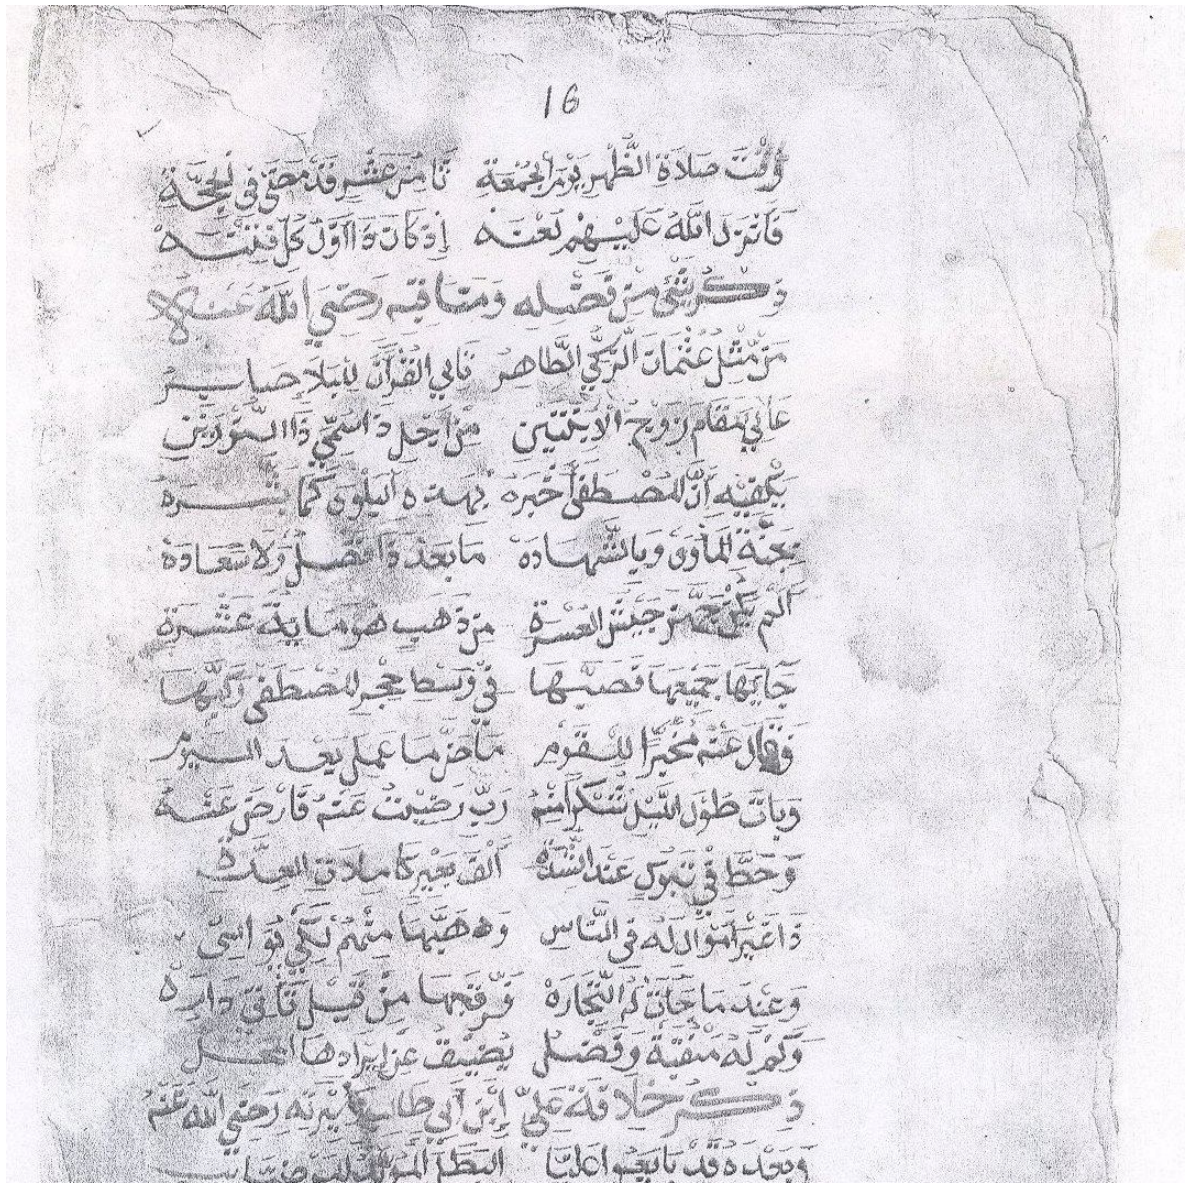 16
وَقْتَ صَلَاةِ الظُّهْرِ يَوْمَ الْجُمْعَةِ ثَامِنَ عَشْرٍ قَدْ مَضَى فِي الْحِجَّةِ
فَأَنْزَلَ اللَّهُ عَلَيْهِمْ لَعْنَهْ إِذْ كَانَ ذَا أَوَّلَ كُلِّ فِتْنَهْ
ذكر شئ من فضله ومناقبه رضي الله عنه
مَنْ مِّثْلُ عُثْمَانَ الزَّكِيِّ الطَّاهِرِ تَالِي الْقُرْآنِ لِلْبَلَا صَابِرُ
عَالِي مَقَامٍ زَوْجُ الِابْنَتَيْنِ مِنْ أَجْلِ ذَا سُمِّيَ ذَا النُّورَيْنِ
يَكْفِيهِ أَنَّ الْمُصْطَفَى أَخْبَرَهُ بِهَذِهِ الْبَلْوَى كَمَا بَشَّرَهُ
بِجَنَّةِ الْمَأْوَى وَبِالشَّهَادَهْ مَا بَعْدَ ذَا فَضْلٌ وَلَا سَعَادَهْ
أَلَمْ يَكُنْ جَهَّزَ جَيْشَ الْعُسْرَةِ مِنْ ذَهَبٍ هُوَ مَايَةً عَشَرَةِ
جَا بِهَا جَمِيعِهَا فَصَبَّهَا فِي وَسْطِ حِجْرِ الْمُصْطَفَى
وَقَالَ عَنْهُ مُخْبِرًا لِلْقَوْمِ مَا ضَرَّ مَا عَمِلَ بَعْدَ الْيَوْمِ
وَبَاتَ طُولَ اللَّيْلِ رَبِّ رَضِيتُ عَنْهُ فَارْضَ عَنْهُ
وَحَطَّ فِي تَبُوكَ عِنْدَ الشِّدَّهْ أَلْفَ بَعِيرٍ كَامِلَاتِ الْعِدَّهْ
ذَا غَيْرَ أَمْوَالٍ لَهُ فِي النَّاسِ وَهَبَهَا مِنْهُمْ لِكَيْ يُوَاسِي
وَعِنْدَ مَا جَاتْ لَهُ التِّجَارَهْ فَرَّقَهَا مِنْ قَبْلِ تَأْتِي دَارَهْ
وَكَمْ لَهُ مَنْقَبَةٌ وَفَضْلٌ يَضِيقُ عَنْ إِيرَادِهَا
ذكر خلافة عليّ إبن أبي طالب رضي الله عنه
وَبَعْدَهُ قَدْ بَايَعُوا عَلِيًّا الْبَطَلَ